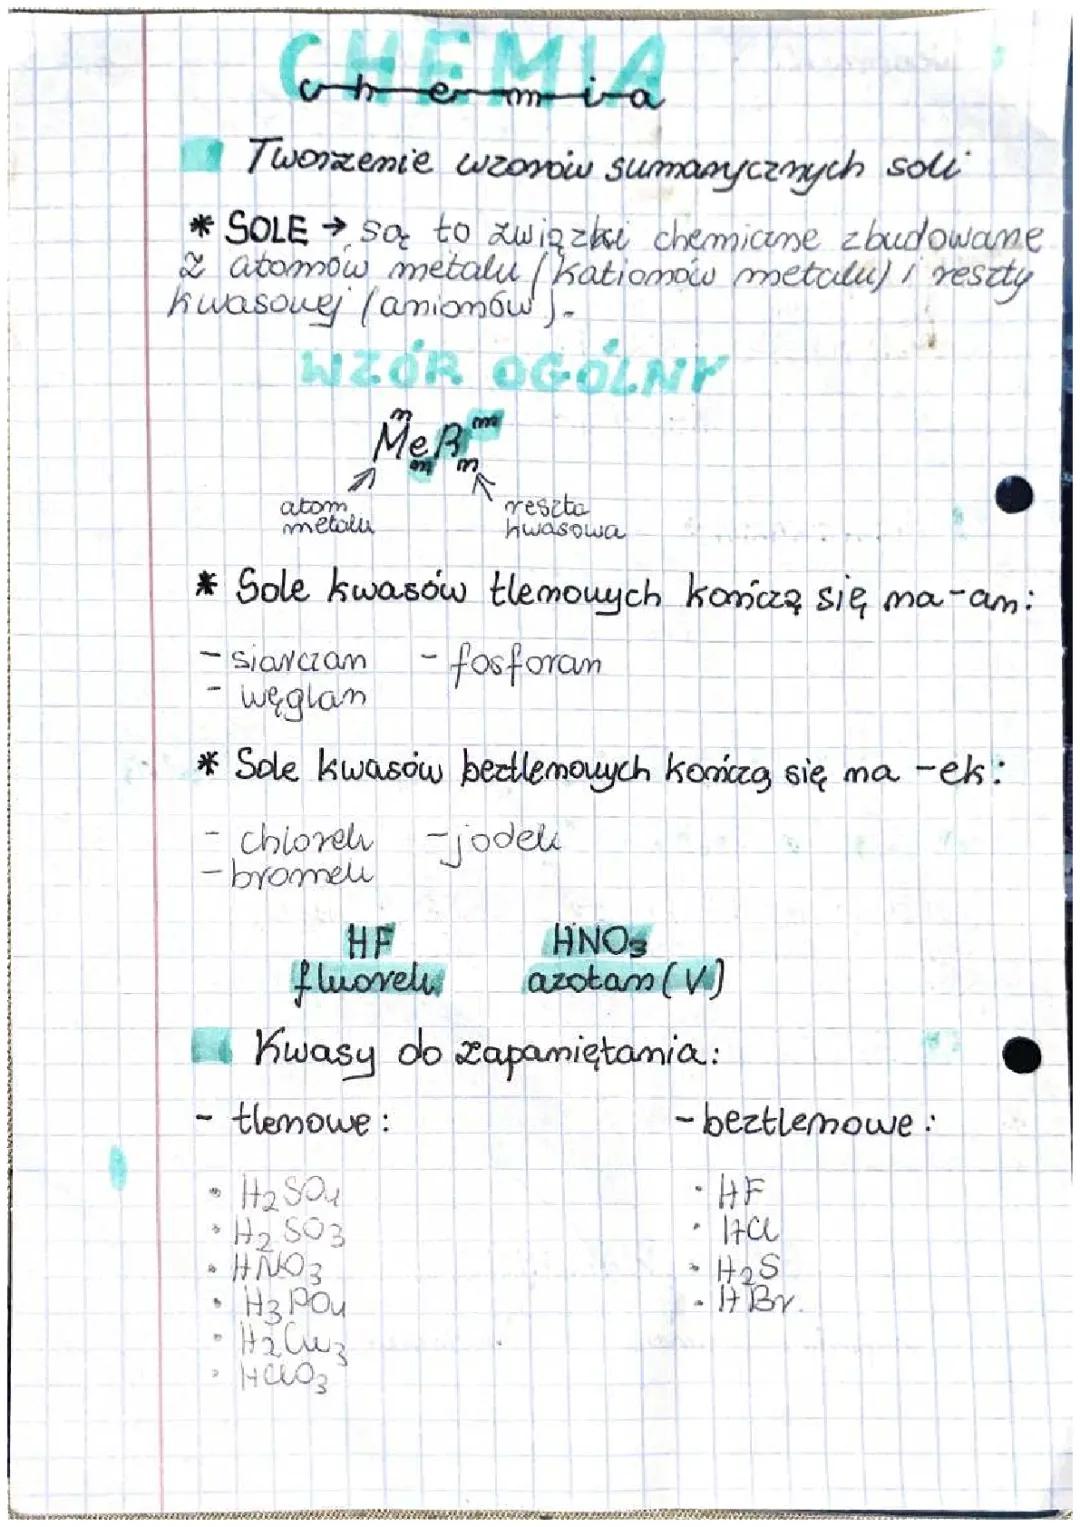 CHEMIA
chemia
Tworzenie wzorów sumarycznych soli
* SOLE → są to związki chemiczne zbudowane
z atomów metalu (kationów metalu) i reszty
kwasowej (anionów).
WZÓR OGÓLNY
n m
MeR
m n
atom reszta
metalu kwasowa
* Sole kwasów tlenowych kończą się na -an:
- siarczan - fosforan
- węglan
* Sole kwasów beztlenowych kończą się na -ek:
- chlorek - jodek
- bromek
HF HNO3
fluorek azotan (V)
Kwasy do zapamiętania:
- tlenowe: - beztlenowe:
• H2SO4 • HF
• H2SO3 • HCl
• HNO3 • H2S
• H3PO4 • HBr
• HClO3